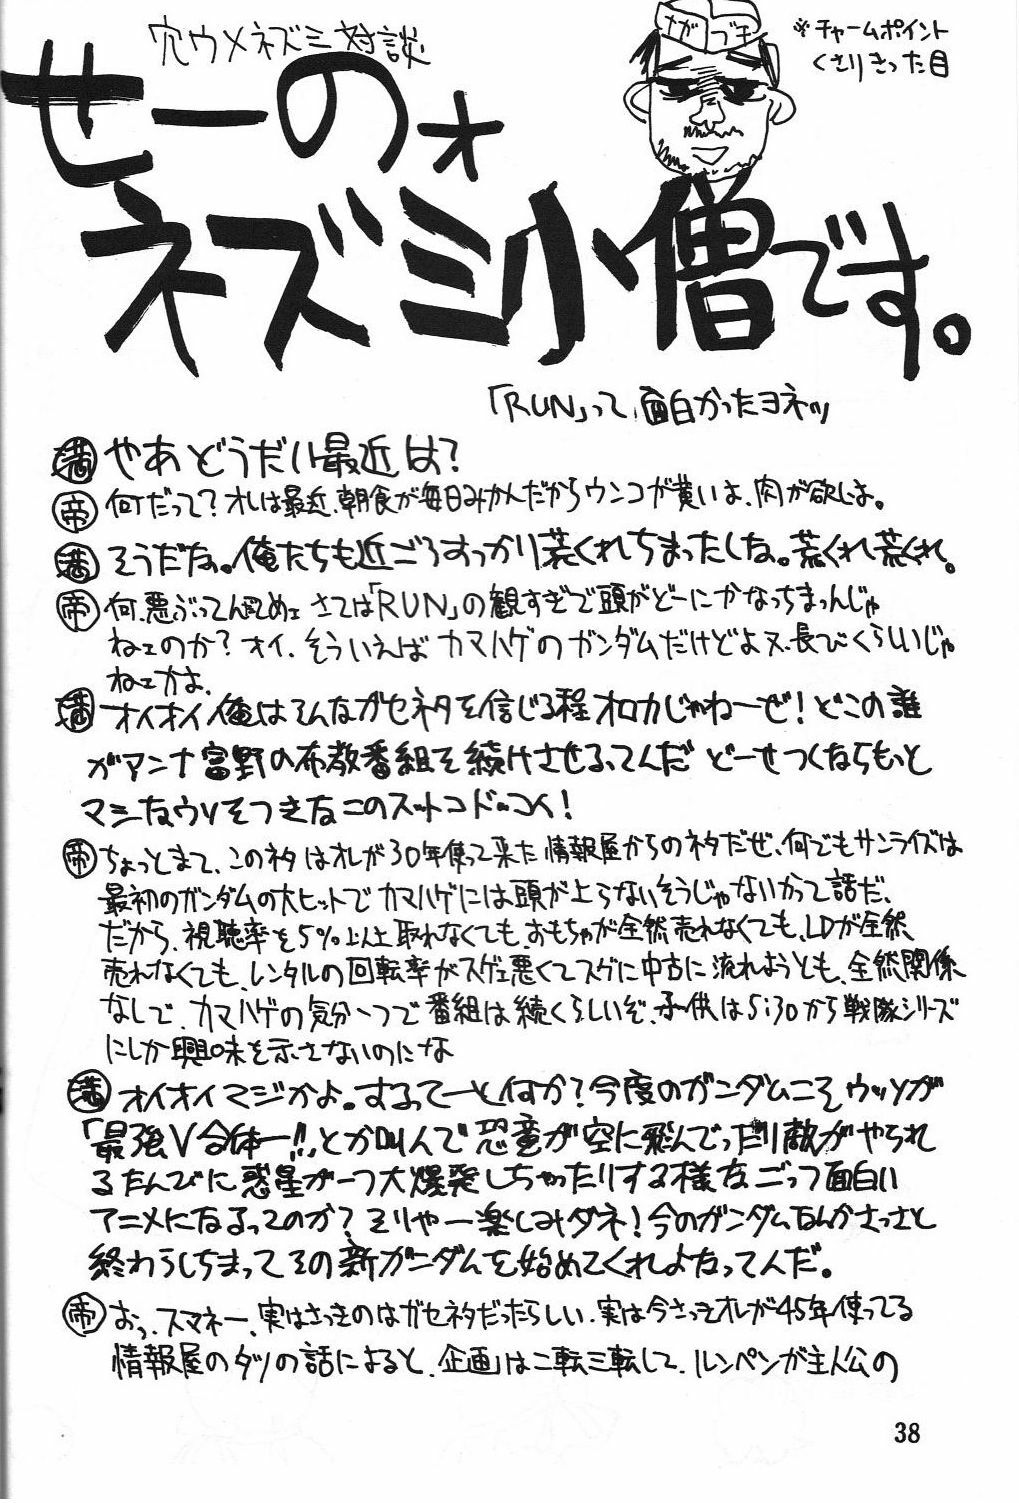 穴ウメネズミ対談
ながブチ
※チャームポイント
くさりきった目
せーのォ
ネズミ小僧です。
「RUN」って、面白かったヨネッ
満 やあどうだい最近は?
帝 何だって?オレは最近、朝食が毎日みかんだからウンコが黄いよ、肉が欲しいよ。
満 そうだな。俺たちも近ごろすっかり荒くれちまったしな。荒くれ荒くれ。
帝 何、悪ぶってんだてめェ さては「RUN」の観すぎで頭がどーにかなっちまったんじゃ
ねェのか?オイ、そういえばカマハゲのガンダムだけどよ又、長びくらしいじゃ
ねェかよ、
満 オイオイ俺はそんなガセネタを信じる程オロカじゃねーぜ!どこの誰
がアンナ富野の布教番組を続けさせるってんだ どーせつくならもっと
マシなウソをつきなこのスットコドッコイ!
帝 ちょっとまて、このネタはオレが30年使って来た情報屋からのネタだぜ、何でもサンライズは
最初のガンダムの大ヒットでカマハゲには頭が上らないそうじゃないかって話だ、
だから、視聴率を5%以上取れなくても、おもちゃが全然売れなくても、LDが全然
売れなくても、レンタルの回転率がスゲェ悪くてスグに中古に流れようとも、全然関係
なしで、カマハゲの気分一つで番組は続くらしいぞ、子供は5:30から戦隊シリーズ
にしか興味を示さないのにな
満 オイオイマジかよ。するってーと何か?今度のガンダムこそウッソが
「最強V合体ー!!」とか叫んで恐竜が空に飛んでったり敵がやられ
るたんびに惑星が一つ大爆発しちゃったりする様なごっつ面白い
アニメになるってのか?そりゃー楽しみダネ!今のガンダムなんかさっさと
終わらしちまってその新ガンダムを始めてくれよなってんだ。
帝 おっ、スマネー、実はさっきのはガセネタだったらしい、実は今さっきオレが45年使ってる
情報屋のダツの話によると、企画は二転三転して、ルンペンが主人公の
38